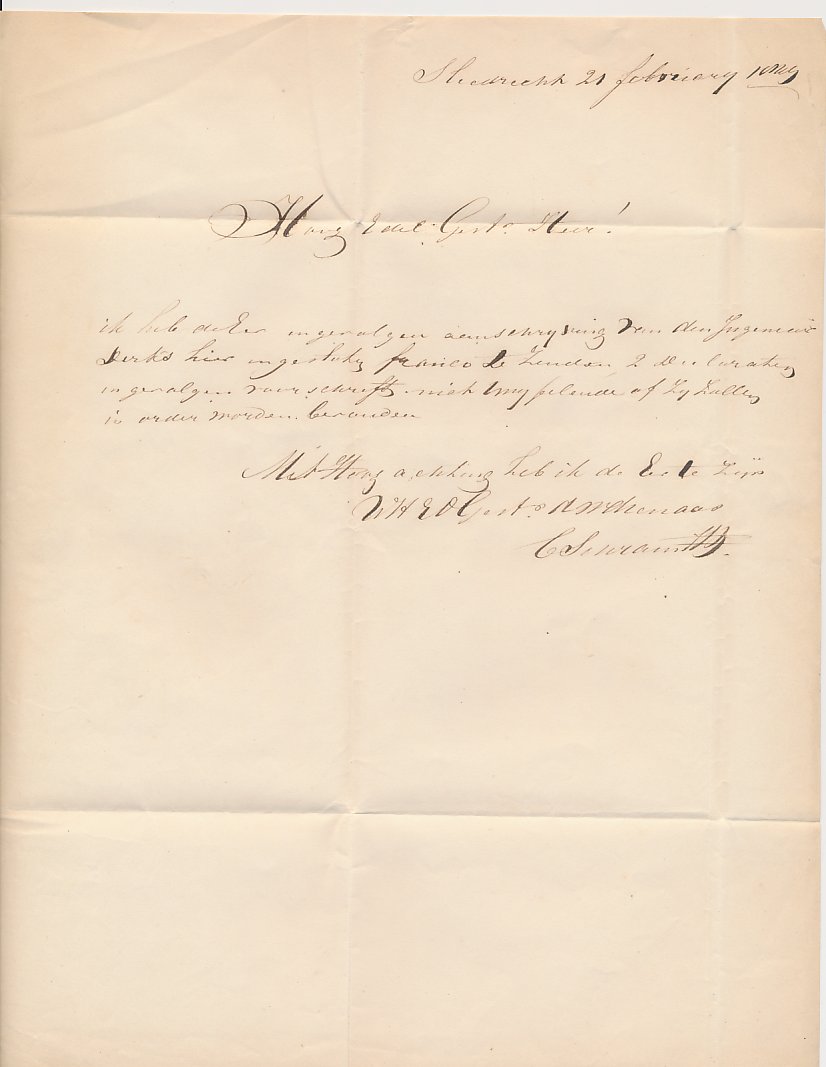 Sliedrecht 21 february
Hoog Edel Gestr Heer!
ik heb de Eer ingevolgen aanschryving van den Ingenieur
Derks hier ingesloten franco te zenden 2 Declaraties
ingevolgen voorschrift niet twyfelende of Zy Zullen
in order worden bevonden
Met Hoog achting heb ik de Eer te Zyn
UHEDGestr dw dienaar
C Schram